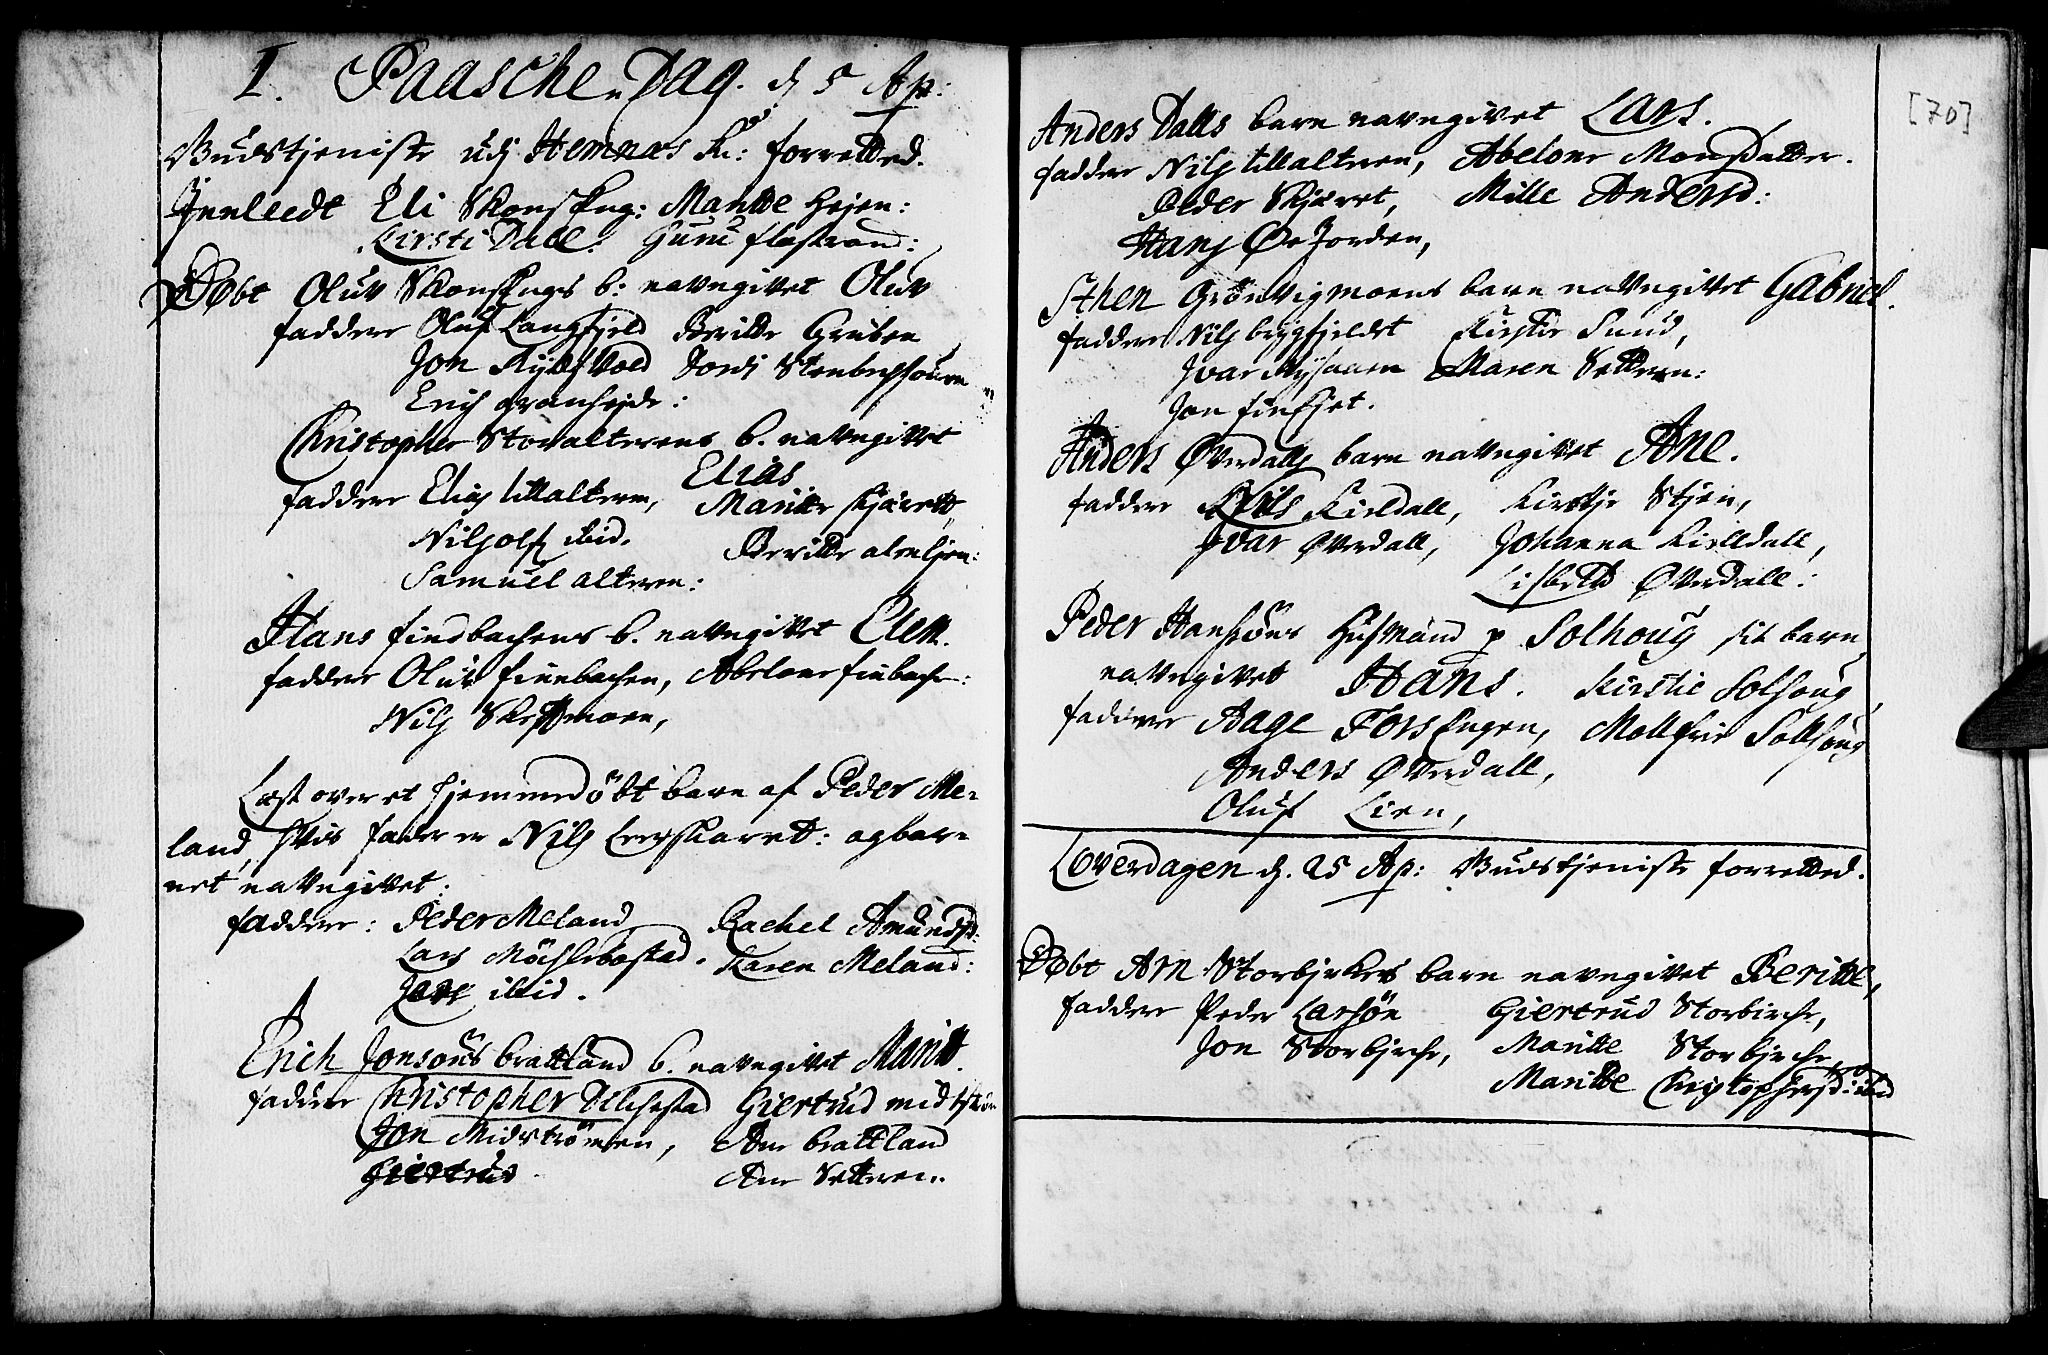 I. Paasche-Dag. d 5 Ap:
Gudstjeniste udj Hemnæs K: forretted.
Jnnleedt Eli Skonseng: Maritte
Kirsti Dall. Guru flostrand:
Døbt Oluv Skonsengs b: navngivet Oluv
faddere Oluf Langfjeld Beritte Gruben
Jon Dordj
Erich granheyde:
Christopher Storalterens b. navngivet
Elias
faddere Elias litlalteren, Maritte
Nils Ols ibid. Beritte
Samuel alteren:
Hans findbachens b. navngivet Elen.
faddere Oluv finnbachen, Abelone finbach:
Nils moen,
Læst over et hjemmedøbt barn af Peder Me-
land, hvis fader er Nils : og bar-
net navngivet:
faddere: Peder Meland Rachel Amundsd:
Lars Karen Meland:
ibid.
Erich Jonsøns brattland b. navngivet Maritt.
faddere Christopher Giertrud
Jon Midstrømen, Ane brattland
Giertrud Ane Setteren.
[70]
Anders Dalls barn navngivet Lars.
faddere Nils litlalteren, Abelone Monsdatter.
Peder Skjæret, Mille Andersd:
Hans Øejorden,
Sthen Grönvigmoens barn navngivet Gabriel.
faddere Nils bygfjeldet Kirstie Sund,
Jvar Maren Setteren:
Jon
Anders Øverdalls barn navngivet Ane.
faddere Nils Kieldall, Kirstje Stjen,
Jvar Øverdall, Johanna Kielldall,
Lisbeth Øverdall:
Peder Hansøns Husmand p Solhoug sit barn
navngivet Hans. Kirstie Solhoug,
faddere Aage Forsengen, Mallfrie Solhoug
Anders Øverdall,
Oluf Lien,
Löverdagen d. 25 Ap: Gudstjeniste forretted.
Døbt Arn Storbjrkes barn navngivet Beritte,
faddere Peder Larsön Giertrud Storbirche,
Jon Storbjrche, Maritte Storbjrche,
Maritte Christophersd: ibid